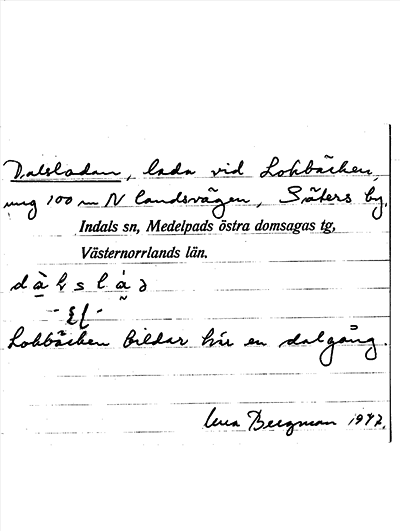 Dalsladan, lada vid Lokbäcken,
ung 100 m N landsvägen, Säters by.
Indals sn, Medelpads östra domsagas tg,
Västernorrlands län.
Lokbäcken bildar här en dalgång.
Bergman 1947.